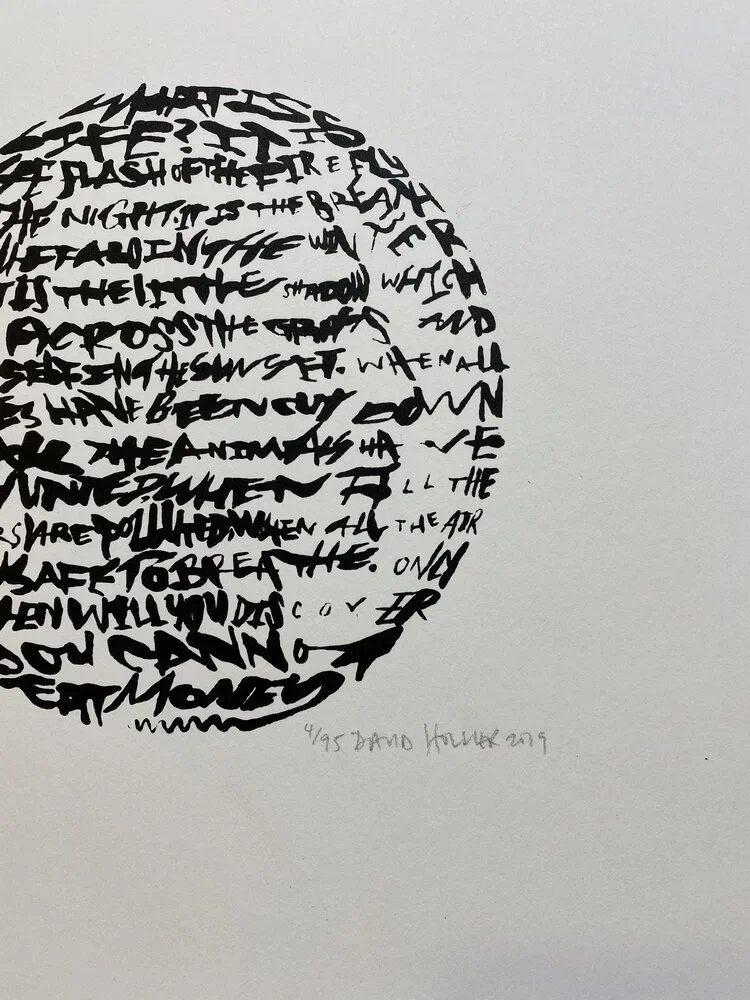 WHAT IS
LIFE? IT IS
THE FLASH OF THE FIREFLY
THE NIGHT. IT IS THE BREATH
UFFALO IN THE WINTER
T IS THE LITTLE SHADOW WHICH
ACROSS THE GRASS AND
SELF IN THE SUNSET. WHEN ALL
ES HAVE BEEN CUT DOWN
ALL THE ANIMALS HAVE
UNTED. WHEN ALL THE
RS ARE POLLUTED. WHEN ALL THE AIR
NSAFE TO BREATHE. ONLY
HEN WILL YOU DISCOVER
YOU CANNOT
EAT MONEY
4/95 DAVID HOLLIER 2019